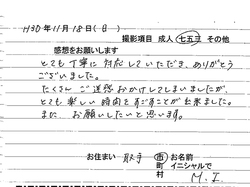 H30年11月18日(日)
撮影項目 成人 七五三 その他
感想をお願いします
とても丁寧に対応していただき、ありがとう
ございました。
たくさんご迷惑おかけしてしまいましたが、
とても楽しい時間を過ごすことが出来ました。
また、お願いしたいと思います。
お住まい 取手 市 お名前
町 イニシャルで
村 M.I